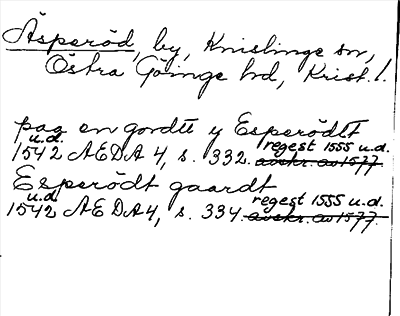 Äsperöd, by, Knislinge sn,
Östra Göinge hd, Krist. l.
paa en gordtt y Esperödtt
u.d. regest 1555 u.d.
1542 ÆDA 4, s. 332. avskr. av 1577.
Esperödt gaardt
u.d. regest 1555 u.d.
1542 ÆDA 4, s. 334. avskr. av 1577.